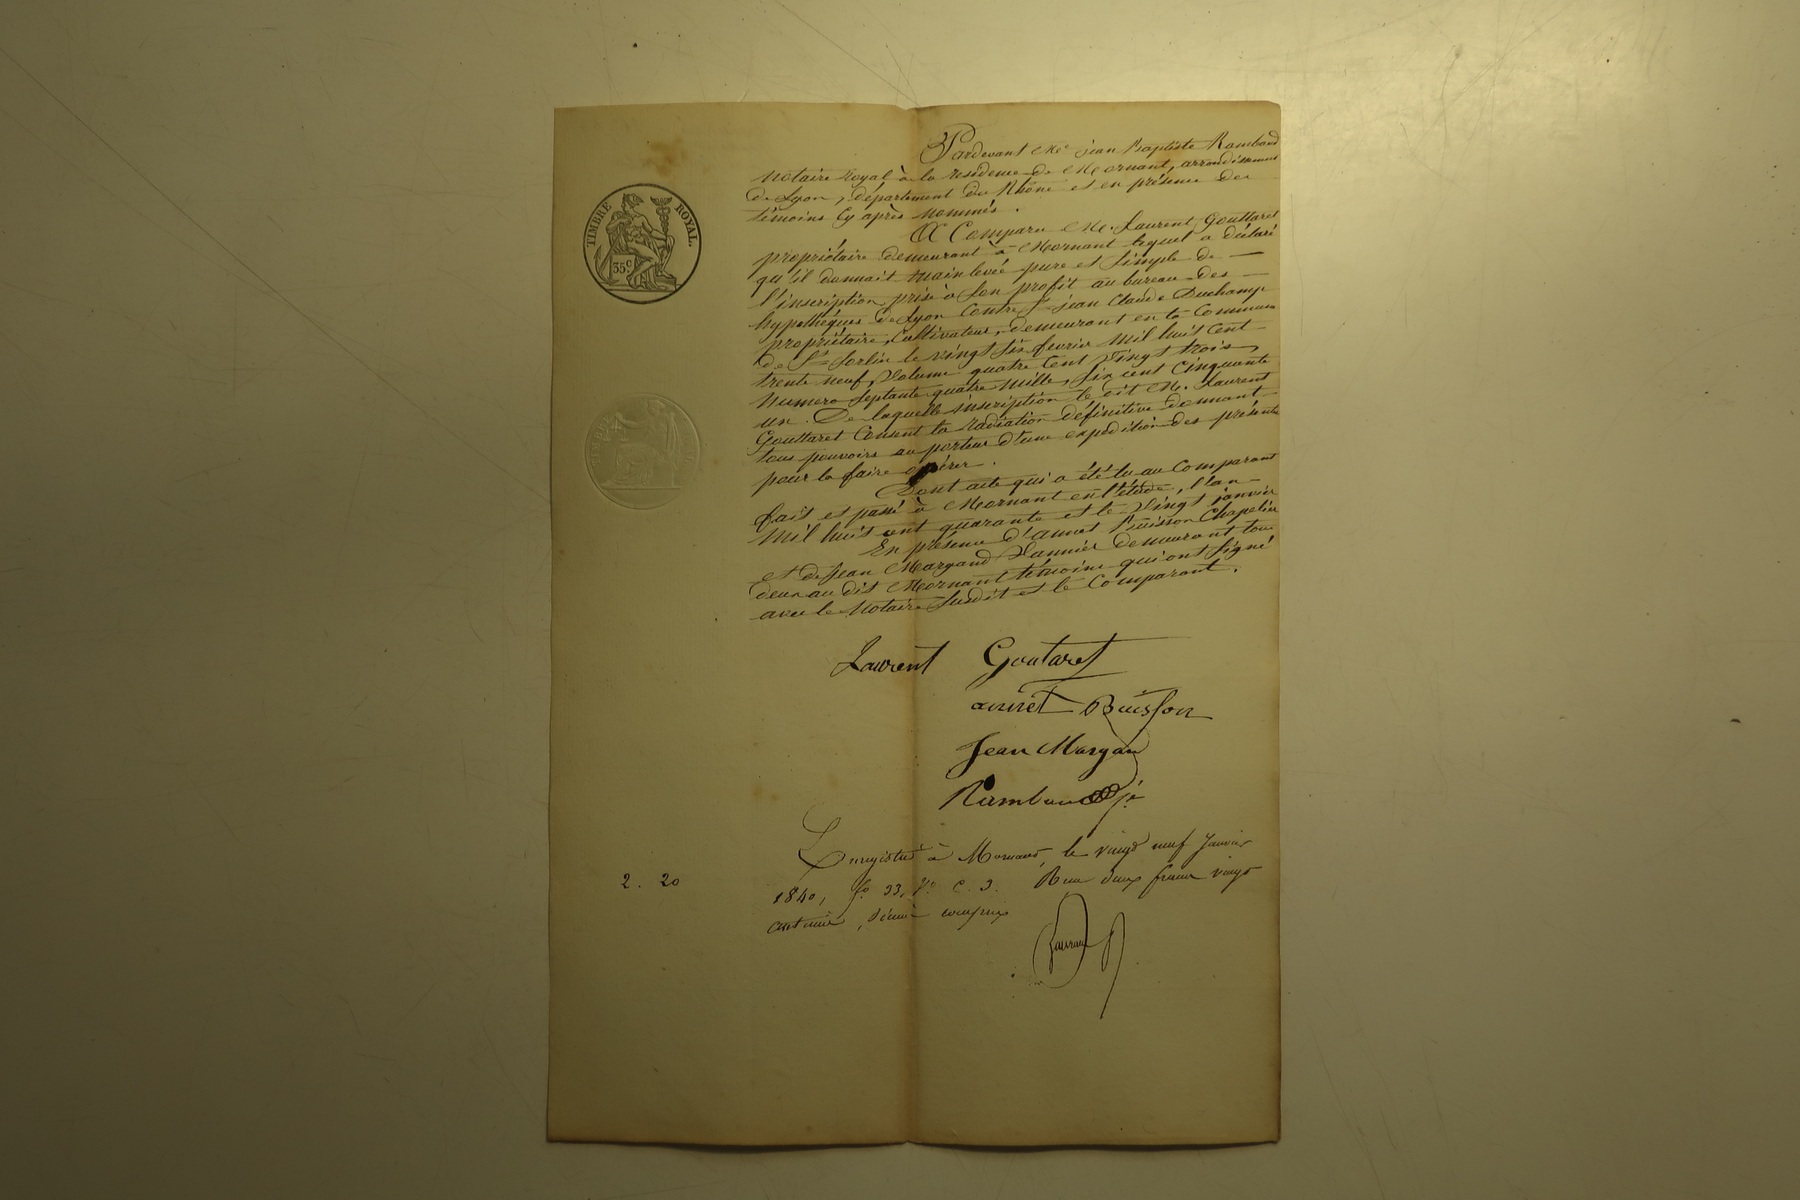 Pardevant Me jean Baptiste Rambaud
notaire royal à la résidence de Mornant, arrondissement
de Lyon, département du Rhône et en présence des
témoins cy après nommés.
A Comparu M. Laurent Gouttaret
propriétaire demeurant à Mornant lequel a déclaré
qu'il donnait main levée pure et simple de —
l'inscription prise à son profit au bureau des —
hypothèques de Lyon contre sr jean Claude Duchamp
propriétaire, cultivateur, demeurant en la Commune
de St Sorlin le vingt six fevrier mil huit cent
trente neuf, volume quatre cent vingt trois,
numero septante quatre mille, six cent cinquante
un. De laquelle inscription le dit M. Laurent
Gouttaret Consent la radiation définitive donnant
tous pouvoirs au porteur d'une expédition des présentes
pour la faire opérer.
Dont acte qui a été lu au Comparant
fait et passé à Mornant en l'étude, l'an —
mil huit cent quarante et le vingt janvier
En présence d'annet Buisson Chapelier
et de Jean Margand Vannier demeurant tous
deux au dit Mornant témoins qui ont signé
avec le Notaire susdit et le Comparant.
Laurent Goutaret
annet Buisson
Jean Margan
Rambaud
TIMBRE ROYAL.
35c
Enregistré à Mornant, le vingt neuf Janvier
2. 20
1840, fo 33, Vo C. 3. Reçu deux francs vingt
centimes, décime compris